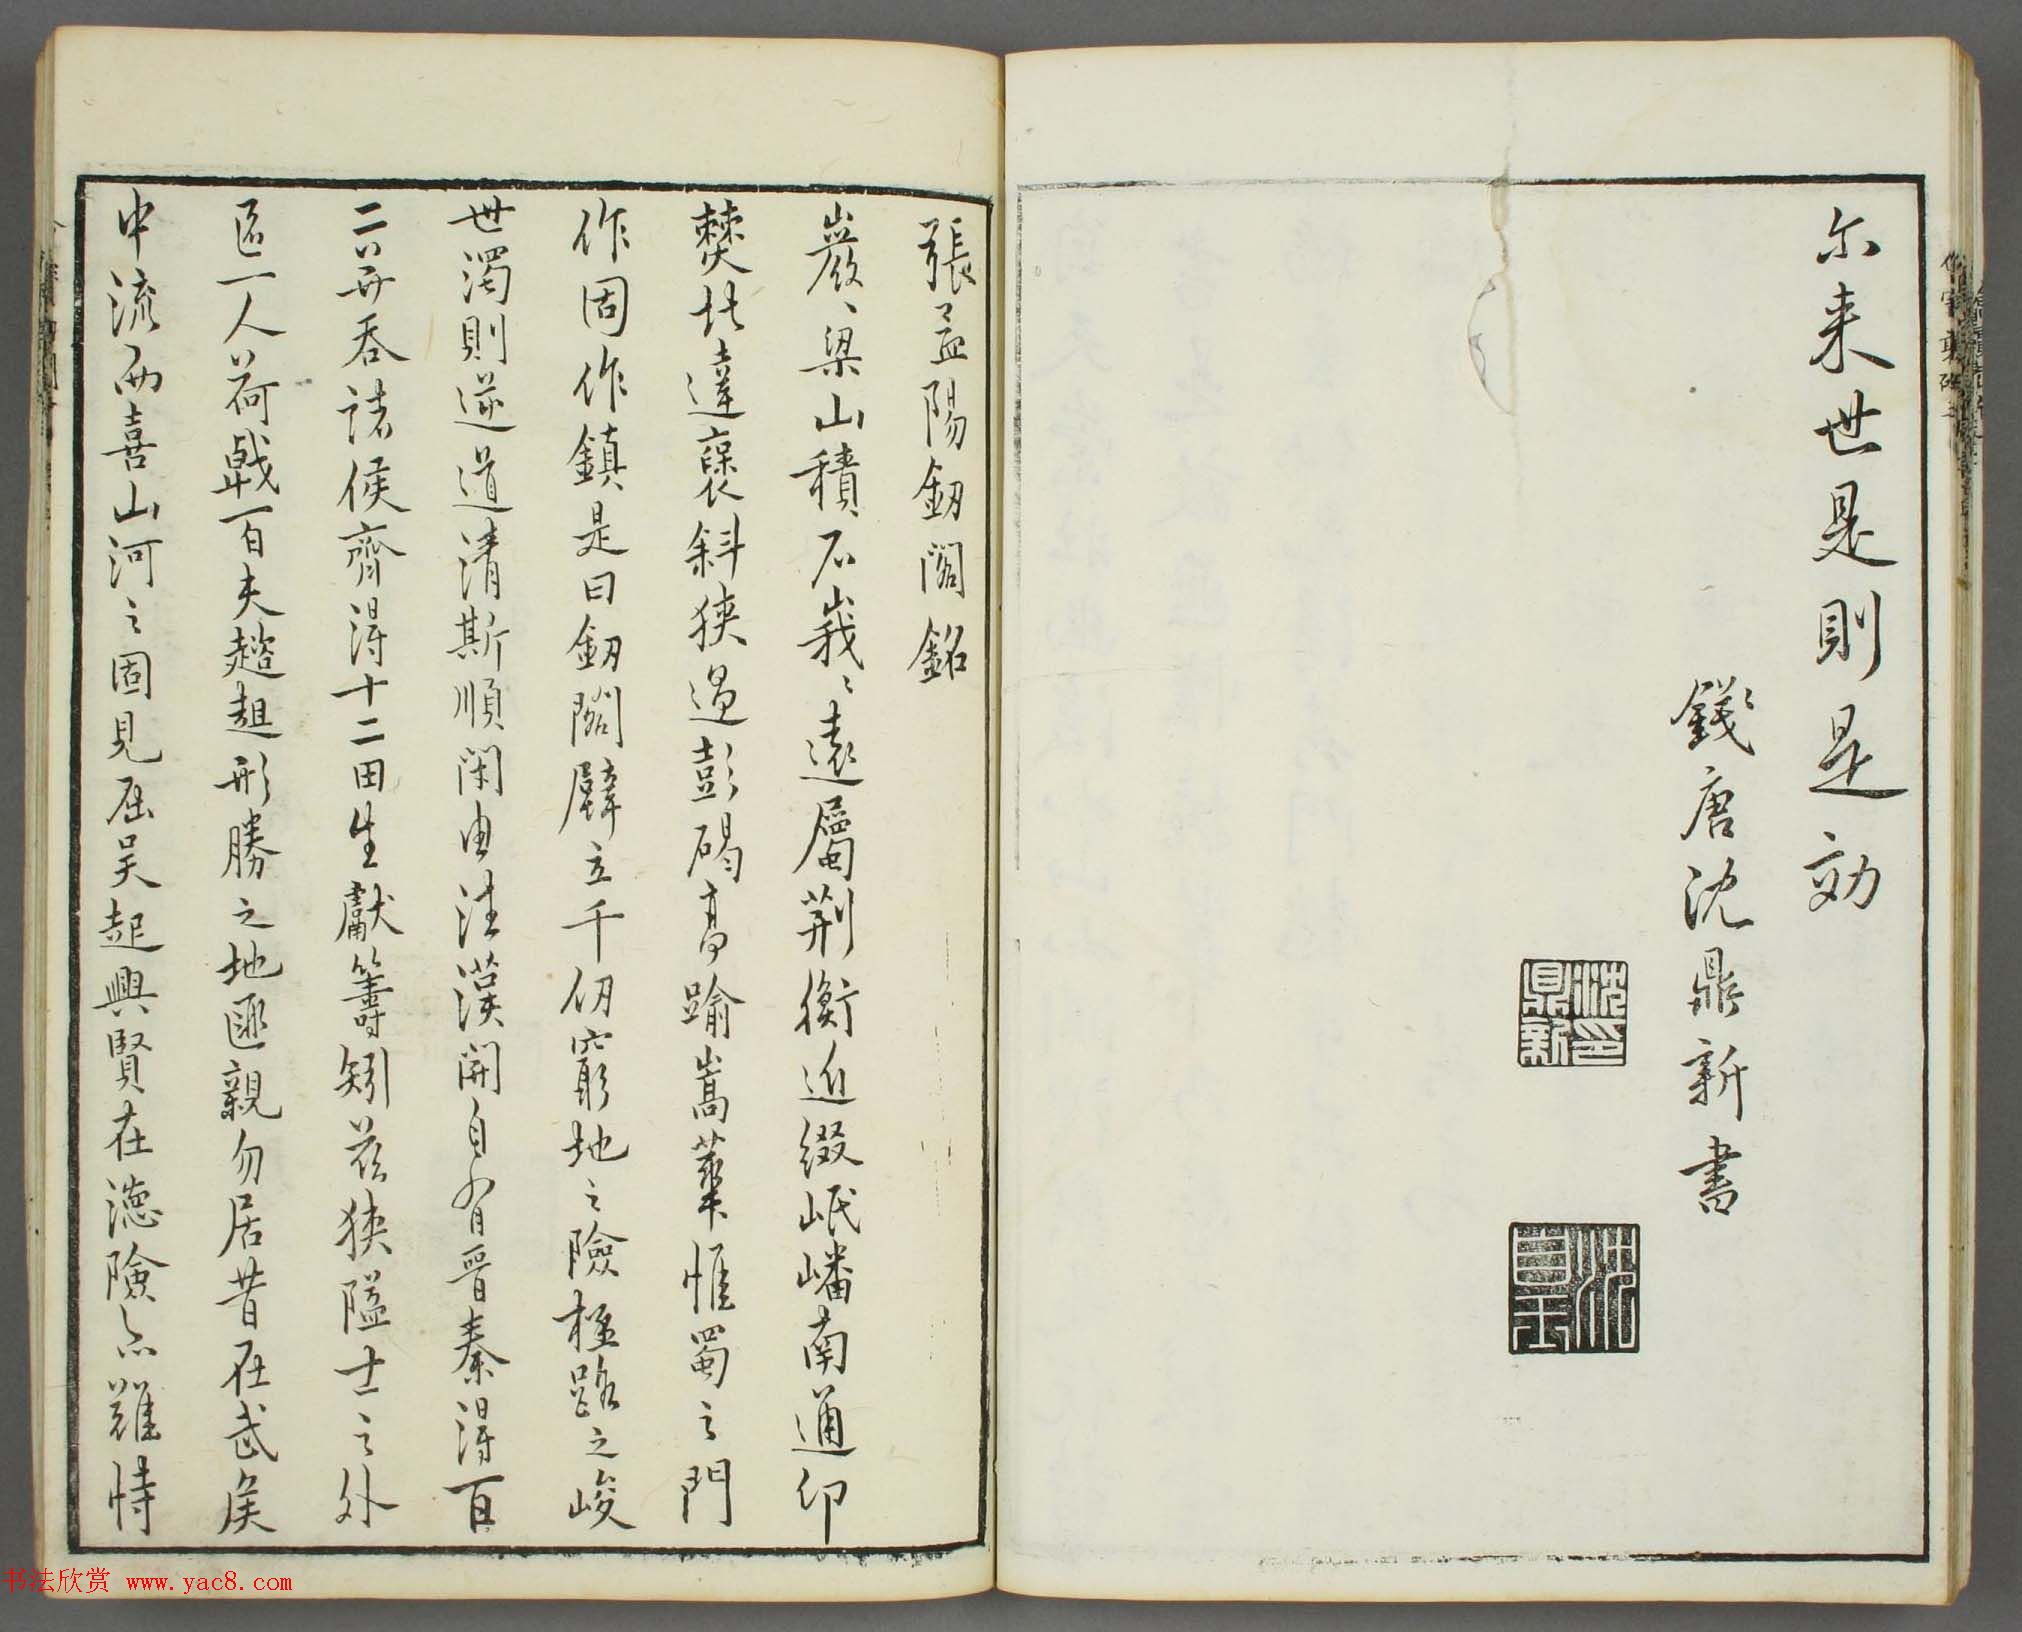 尓来世是則是効
錢唐沈鼎新書
沈印鼎新
沈自玉
張孟陽劒閣銘
巖〻梁山積石峩〻遠屬荆衡近綴岷嶓南通卭
僰北達褒斜狹過彭碣高踰嵩華惟蜀之門
作固作鎮是曰劒閣壁立千仞窮地之險極路之峻
世濁則逆道清斯順閉由往漢開自有晉秦得百
二并吞諸侯齊得十二田生獻籌矧茲狹隘土之外
區一人荷戟百夫趑趄形勝之地匪親勿居昔在武侯
中流而喜山河之固見屈吳起興實在德險亦難恃
书法欣赏 www.yac8.com